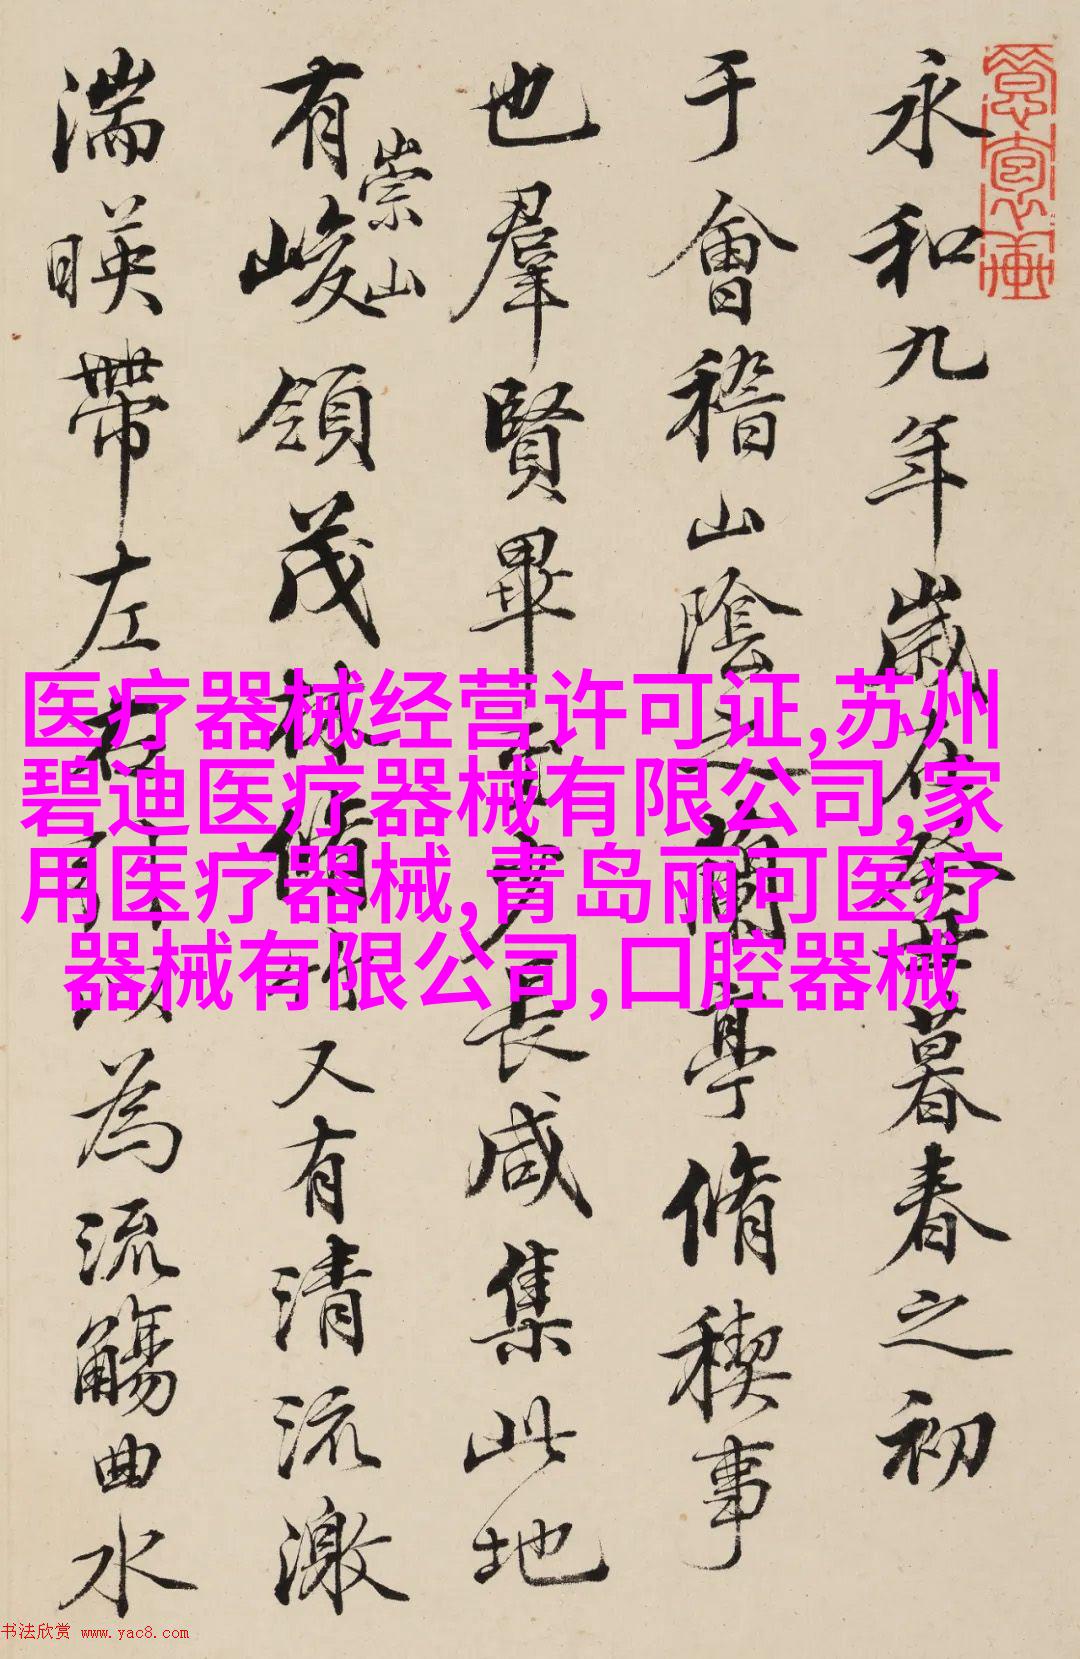 永和九年歲在癸丑暮春之初
于會稽山陰之蘭亭脩稧事
也羣賢畢至少長咸集此地
有峻領茂林脩竹又有清流激
崇山
湍暎帶左右引以為流觴曲水
医疗器械经营许可证,苏州
碧迪医疗器械有限公司,家
用医疗器械,青岛丽可医疗
器械有限公司,口腔器械
书法欣赏 www.yac8.com